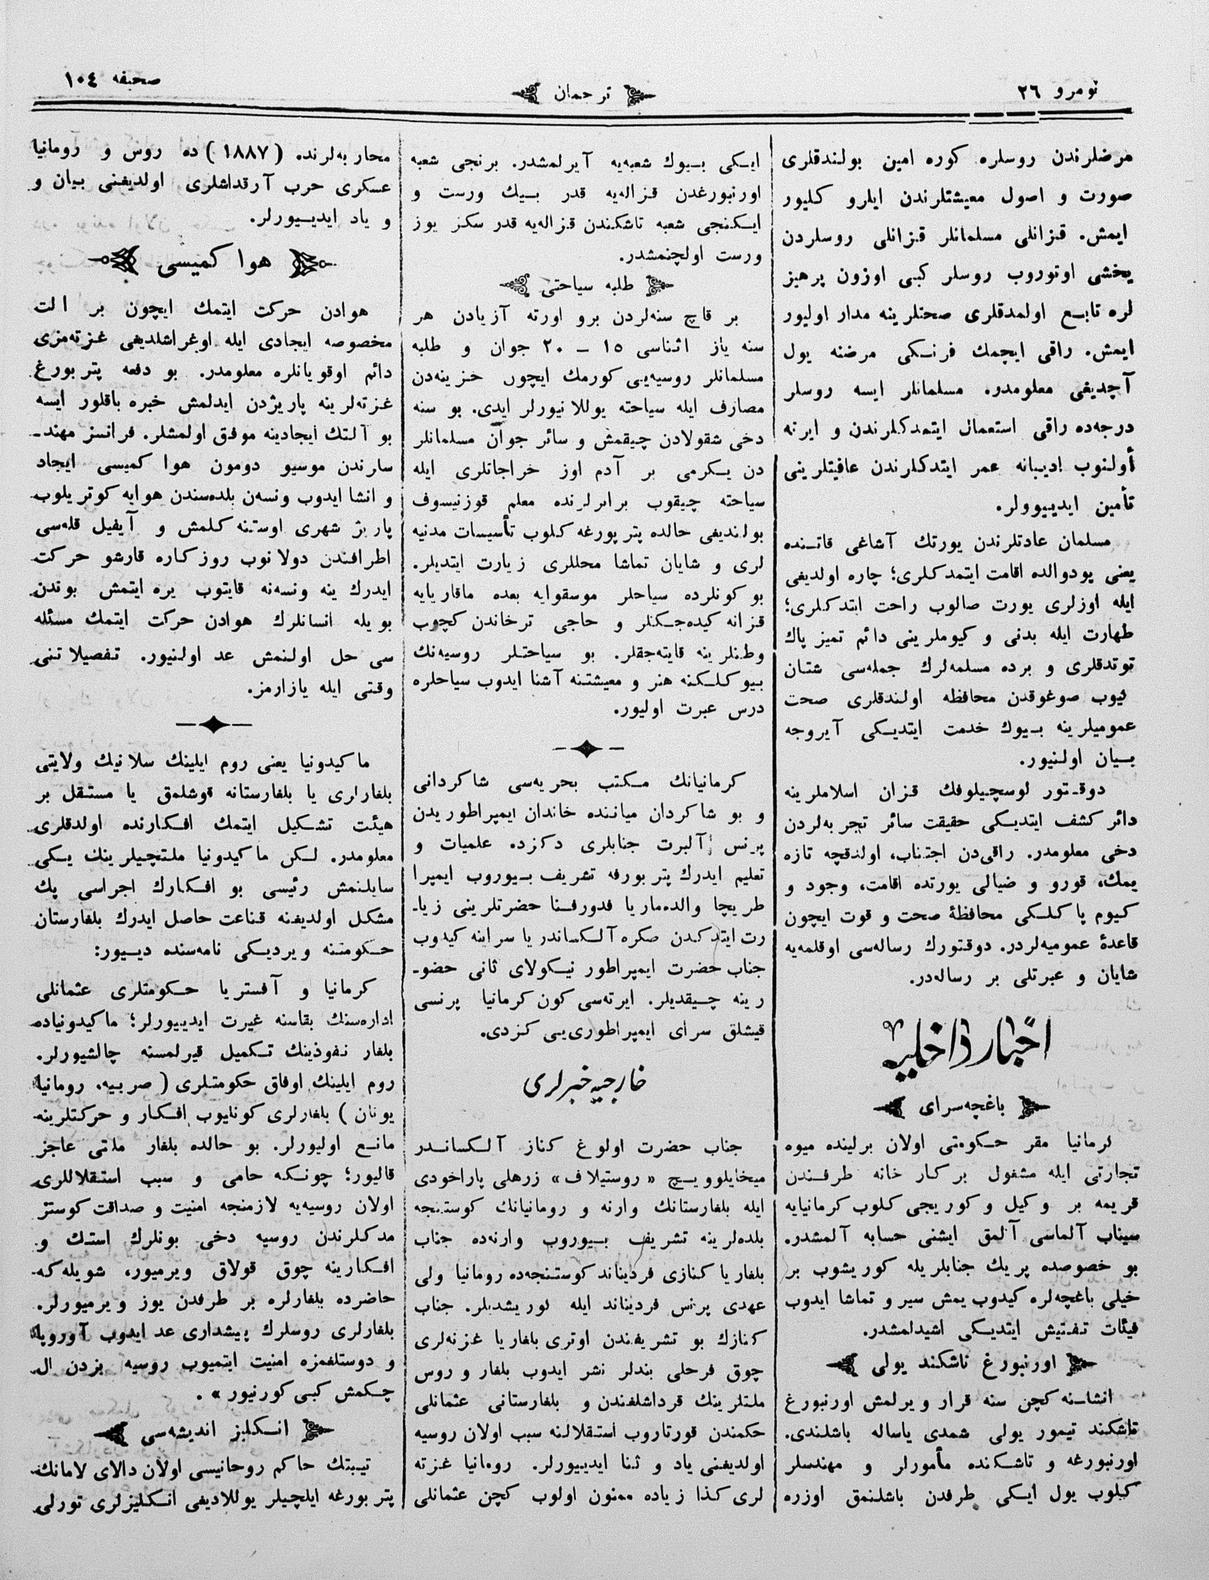 نومرو ٢٦
ترجمان
صحیفه ١٠٤
مرضلرندن روسلره كوره امین بولندقلری
صورت و اصول معیشتلرندن ایلرو كلیور
ایمش. قزانلی مسلمانلر قزانلی روسلردن
یخشی اوتوروب روسلر كبی اوزون پرهیز
لره تابع اولمدقلری صحتلرینه مدار اولیور
ایمش. راقی ایچمك فرنكی مرضنه یول
آچدیغی معلومدر. مسلمانلر ایسه روسلر
درجه‌ده راقی استعمال ایتمدكلرندن و ایرته
أولنوب ادیبانه عمر ایتدكلرندن عافیتلرینی
تأمین ایدییوولر.
مسلمان عادتلرندن یورتك آشاغی قاتنده
یعنی پودوالده اقامت ایتمدكلری؛ چاره اولدیغی
ایله اوزلری یورت صالوب راحت ایتدكلری؛
طهارت ایله بدنی و كیوملرینی دائم تمیز پاك
توتدقلری و برده مسلمه‌لرك جمله‌سی شتان
كیوب صوغوقدن محافظه اولندقلری صحت
عمومیلرینه بیوك خدمت ایتدیكی آیروجه
بیان اولنیور.
دوقتور لوسچیلوفك قزان اسلاملرینه
دائر كشف ایتدیكی حقیقت سائر تجربه‌لردن
دخی معلومدر. راقی‌دن اجتناب، اولدقچه تازه
یمك، قورو و ضیالی یورتده اقامت، وجود و
كیوم پاكلكی محافظهٔ صحت و قوت ایچون
قاعدهٔ عمومیه‌لردر. دوقتورك رساله‌سی اوقلمه‌یه
شایان و عبرتلی بر رساله‌در.
اخبار داخلیه
باغچه‌سرای
كرمانیا مقر حكومتی اولان برلینده میوه
تجارتی ایله مشغول بر كار خانه طرفندن
قریمه بر وكیل و كوریجی كلوب كرمانیایه
سیناب آلماسی آلمق ایشنی حسابه آلمشدر.
بو خصوصده پریك جنابلریله كوریشوب بر
خیلی باغچه‌لره كیدوب یمش سیر و تماشا ایدوب
فیئات تفتیش ایتدیكی اشیدلمشدر.
اورنبورغ تاشكند یولی
انشاسنه كچن سنه قرار ویرلمش اورنبورغ
تاشكند تیمور یولی شمدی یاساله باشلندی.
اورنبورغه و تاشكنده مأمورلر و مهندسلر
كیلوب یول ایكی طرفدن باشلنمق اوزره
ایكی بیوك شعبه‌یه آیرلمشدر. برنجی شعبه
اورنبورغدن قزاله‌یه قدر بیك ورست و
ایكنجی شعبه تاشكندن قزاله‌یه قدر سكز یوز
ورست اولچنمشدر.
طلبه سیاحتی
بر قاچ سنه‌لردن برو اورته آزیادن هر
سنه یاز اثناسی ١٥ – ٢٠ جوان و طلبه
مسلمانلر روسیه‌یی كورمك ایچون خزینه‌دن
مصارف ایله سیاحته یوللانیورلر ایدی. بو سنه
دخی شقولادن چیقمش و سائر جوان مسلمانلر
دن یكرمی بر آدم اوز خراجاتلری ایله
سیاحته چیقوب برابرلرنده معلم قوزنیسوف
بولندیغی حالده پترپورغه كلوب تأسیسات مدنیه
لری و شایان تماشا محللری زیارت ایتدیلر.
بو كونلرده سیاحلر موسقوایه بعده ماقاریایه
قزانه كیده‌جكلر و حاجی ترخاندن كچوب
وطنلرینه قایته‌جقلر. بو سیاحتلر روسیه‌نك
بیوكلكنه هنر و معیشتنه آشنا ایدوب سیاحلره
درس عبرت اولیور.
كرمانیانك مكتب بحریه‌سی شاكردانی
و بو شاكردان میاننده خاندان ایمپراطوریدن
پرنس آلبرت جنابلری دكزد. علمیات و
تعلیم ایدرك پتربورفه تشریف بیوروب ایمپرا
طریچا والده‌ماریا فدورفنا حضرتلرینی زیا
رت ایتدكدن صكره آلكساندریا سراینه كیدوب
جناب حضرت ایمپراطور نیكولای ثانی حضو
رینه چیقدیلر. ایرته‌سی كون كرمانیا پرنسی
قیشلق سرای ایمپراطوری‌یی كزدی.
خارجیه خبرلری
جناب حضرت اولوغ كناز آلكساندر
میخایلوویچ « روستیلاف » زرهلی پاراخودی
ایله بلغارستانك وارنه و رومانیانك كوستنجه
بلده‌لرینه تشریف بیوروب وارنه‌ده جناب
بلغاریا كنازی فردیناند كوستنجه‌ده رومانیا ولی
عهدی پرنس فردیناند ایله كوریشدیلر. جناب
كنازك بو تشریفندن اوتری بلغاریا غزته‌لری
چوق فرحلی بندلر نشر ایدوب بلغار و روس
ملتلرینك قرداشلغندن و بلغارستانی عثمانلی
حكمندن قورتاروب استقلالنه سبب اولان روسیه
اولدیغنی یاد و ثنا ایدییورلر. رومانیا غزته
لری كذا زیاده ممنون اولوب كچن عثمانلی
محاربه‌لرنده. ( ١٨٨٧ ) ده روس و رومانیا
عسكری حرب آرقداشلری اولدیغنی بیان و
و یاد ایدییورلر.
هوا كمیسی
هوادن حركت ایتمك ایچون بر الت
مخصوصه ایجادی ایله اوغراشلدیغی غزته‌مزی
دائم اوقویانلره معلومدر. بو دفعه پتربورغ
غزته‌لرینه پاریژدن ایدلمش خبره باقلور ایسه
بو آلتك ایجادینه موفق اولمشلر. فرانسز مهند
سارندن موسیو دومون هوا كمیسی ایجاد
و انشا ایدوب ونسه‌ن بلده‌سندن هوایه كوتریلوب
پاریژ شهری اوستنه كلمش و آیفیل قله‌سی
اطرافندن دولانوب روزكاره قارشو حركت
ایدرك ینه ونسه‌نه قایتوب یره ایتمش بوندن
بویله انسانلرك هوادن حركت ایتمك مسئله
سی حل اولنمش عد اولنیور. تفصیلاتنی
وقتی ایله یازارمز.
ماكیدونیا یعنی روم ایلینك سلانیك ولایتی
بلغارلری یا بلغارستانه قوشلمق یا مستقل بر
هیئت تشكیل ایتمك افكارنده اولدقلری
معلومدر. لكن ماكیدونیا ملتچیلرینك یكی
سایلنمش رئیسی بو افكارك اجراسی پك
مشكل اولدیغنه قناعت حاصل ایدرك بلغارستان
حكومتنه ویردیكی نامه‌سنده دییور:
كرمانیا و آفستریا حكومتلری عثمانلی
اداره‌سنك بقاسنه غیرت ایدییورلر؛ ماكیدونیاده
بلغار نفوذینك تكمیل قیرلمسنه چالشیورلر.
روم ایلینك اوفاق حكومتلری ( صربیه، رومانیا
یونان ) بلغارلری كونلیوب افكار و حركتلرینه
مانع اولیورلر. بو حالده بلغار ملتی عاجز
قالیور؛ چونكه حامی و سبب استقلاللری
اولان روسیه‌یه لازمنجه امنیت و صداقت كوستر
مدكلرندن روسیه دخی بونلرك استك و
افكارینه چوق قولاق ویرمیور، شویله‌كه
حاضرده بلغارلره بر طرفدن یوز ویرمیورلر.
بلغارلری روسلرك پیشداری عد ایدوب آوروپا
و دوستلغمزه امنیت ایتمیوب روسیه بزدن ال
چكمش كبی كورنیور » .
انكلیز اندیشه‌سی
تیبتك حاكم روحانیسی اولان دالای لامانك
پتربورغه ایلچیلر یوللادیغی انكلیزلری تورلی